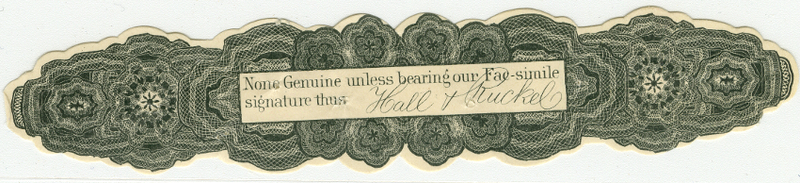 None Genuine unless bearing our Fac-simile
signature thus Hall & Ruckel